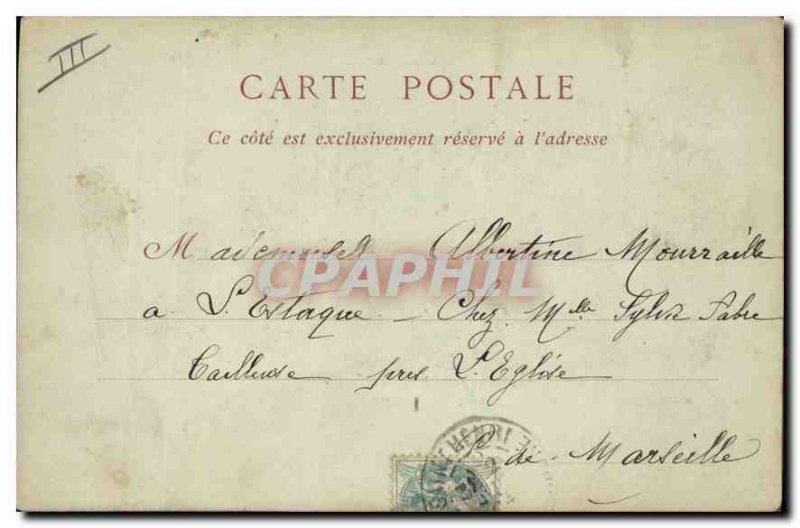 III
CARTE POSTALE
Ce côté est exclusivement réservé à l'adresse
Mademoiselle Albertine Mourraille
CPAPHIL
a L'Estaque - Chez Mlle Sylvie Fabre
Tailleuse près L'Eglise
de Marseille
HENRI